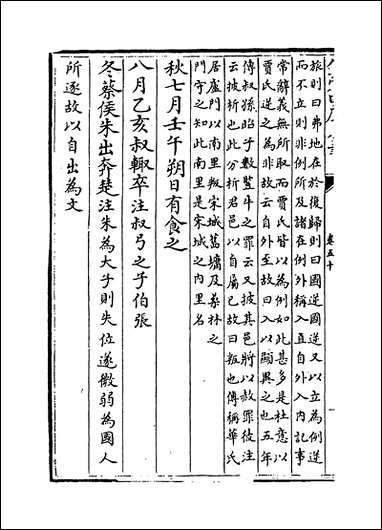 旅則曰弗地在於復歸則曰國逆國逆又以立為例逆
而不立則非例所及諸在例外稱入直自外入內記事
常辭義無所取而賈氏皆以為例如此甚多是杜意以
賈氏逆之為非故云自外至故曰入以顯異之也五年
傳叔孫昭子數豎牛之罪云又披其邑將以赦罪彼注
云披析也此分析君邑以自屬已故曰叛也傳稱華氏
居廬門以南里叛宋城舊墉及桑林之
門守之知此南里是宋城之內里名
秋七月壬午朔日有食之
八月乙亥叔輒卒注叔弓之子伯張
冬蔡侯朱出奔楚注朱為大子則失位遂微弱為國人
所逐故以自出為文
卷五十